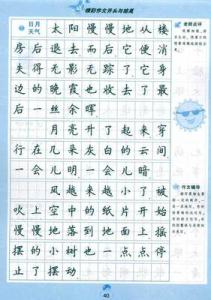 精彩作文开头与结尾
日月
天气
太阳慢慢地从楼
房后退去而后它便消
失得无影无踪了它身
边的晚霞也收去了最
后一丝余晖
月亮升了起来穿
行在几朵灰白的云间
一会儿明一会儿暗
风越来越小了被
吹上空中的纸片开始
慢慢地落到地面上摇
摆的小树也一点点停
止了摆动
老师点评
作文辅导
40